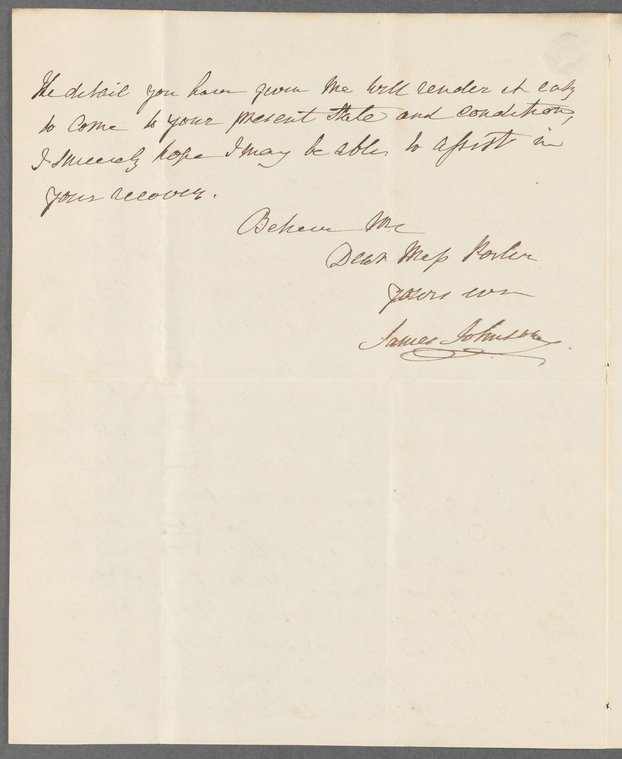 The detail you have given me will render it easy
to come to your present state and condition,
I sincerely hope I may be able to assist in
your recovery.
Believe Me
Dear Miss Porter
yours ever
James Johnstone